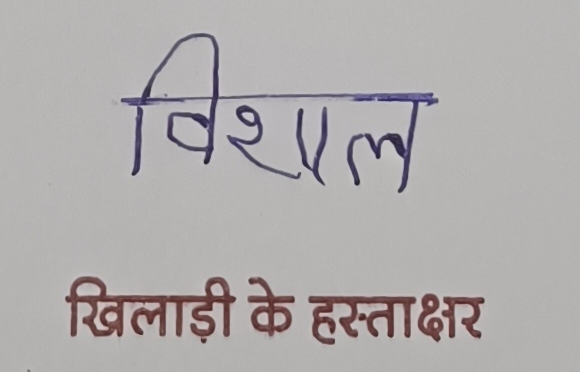 विशाल
खिलाड़ी के हस्ताक्षर